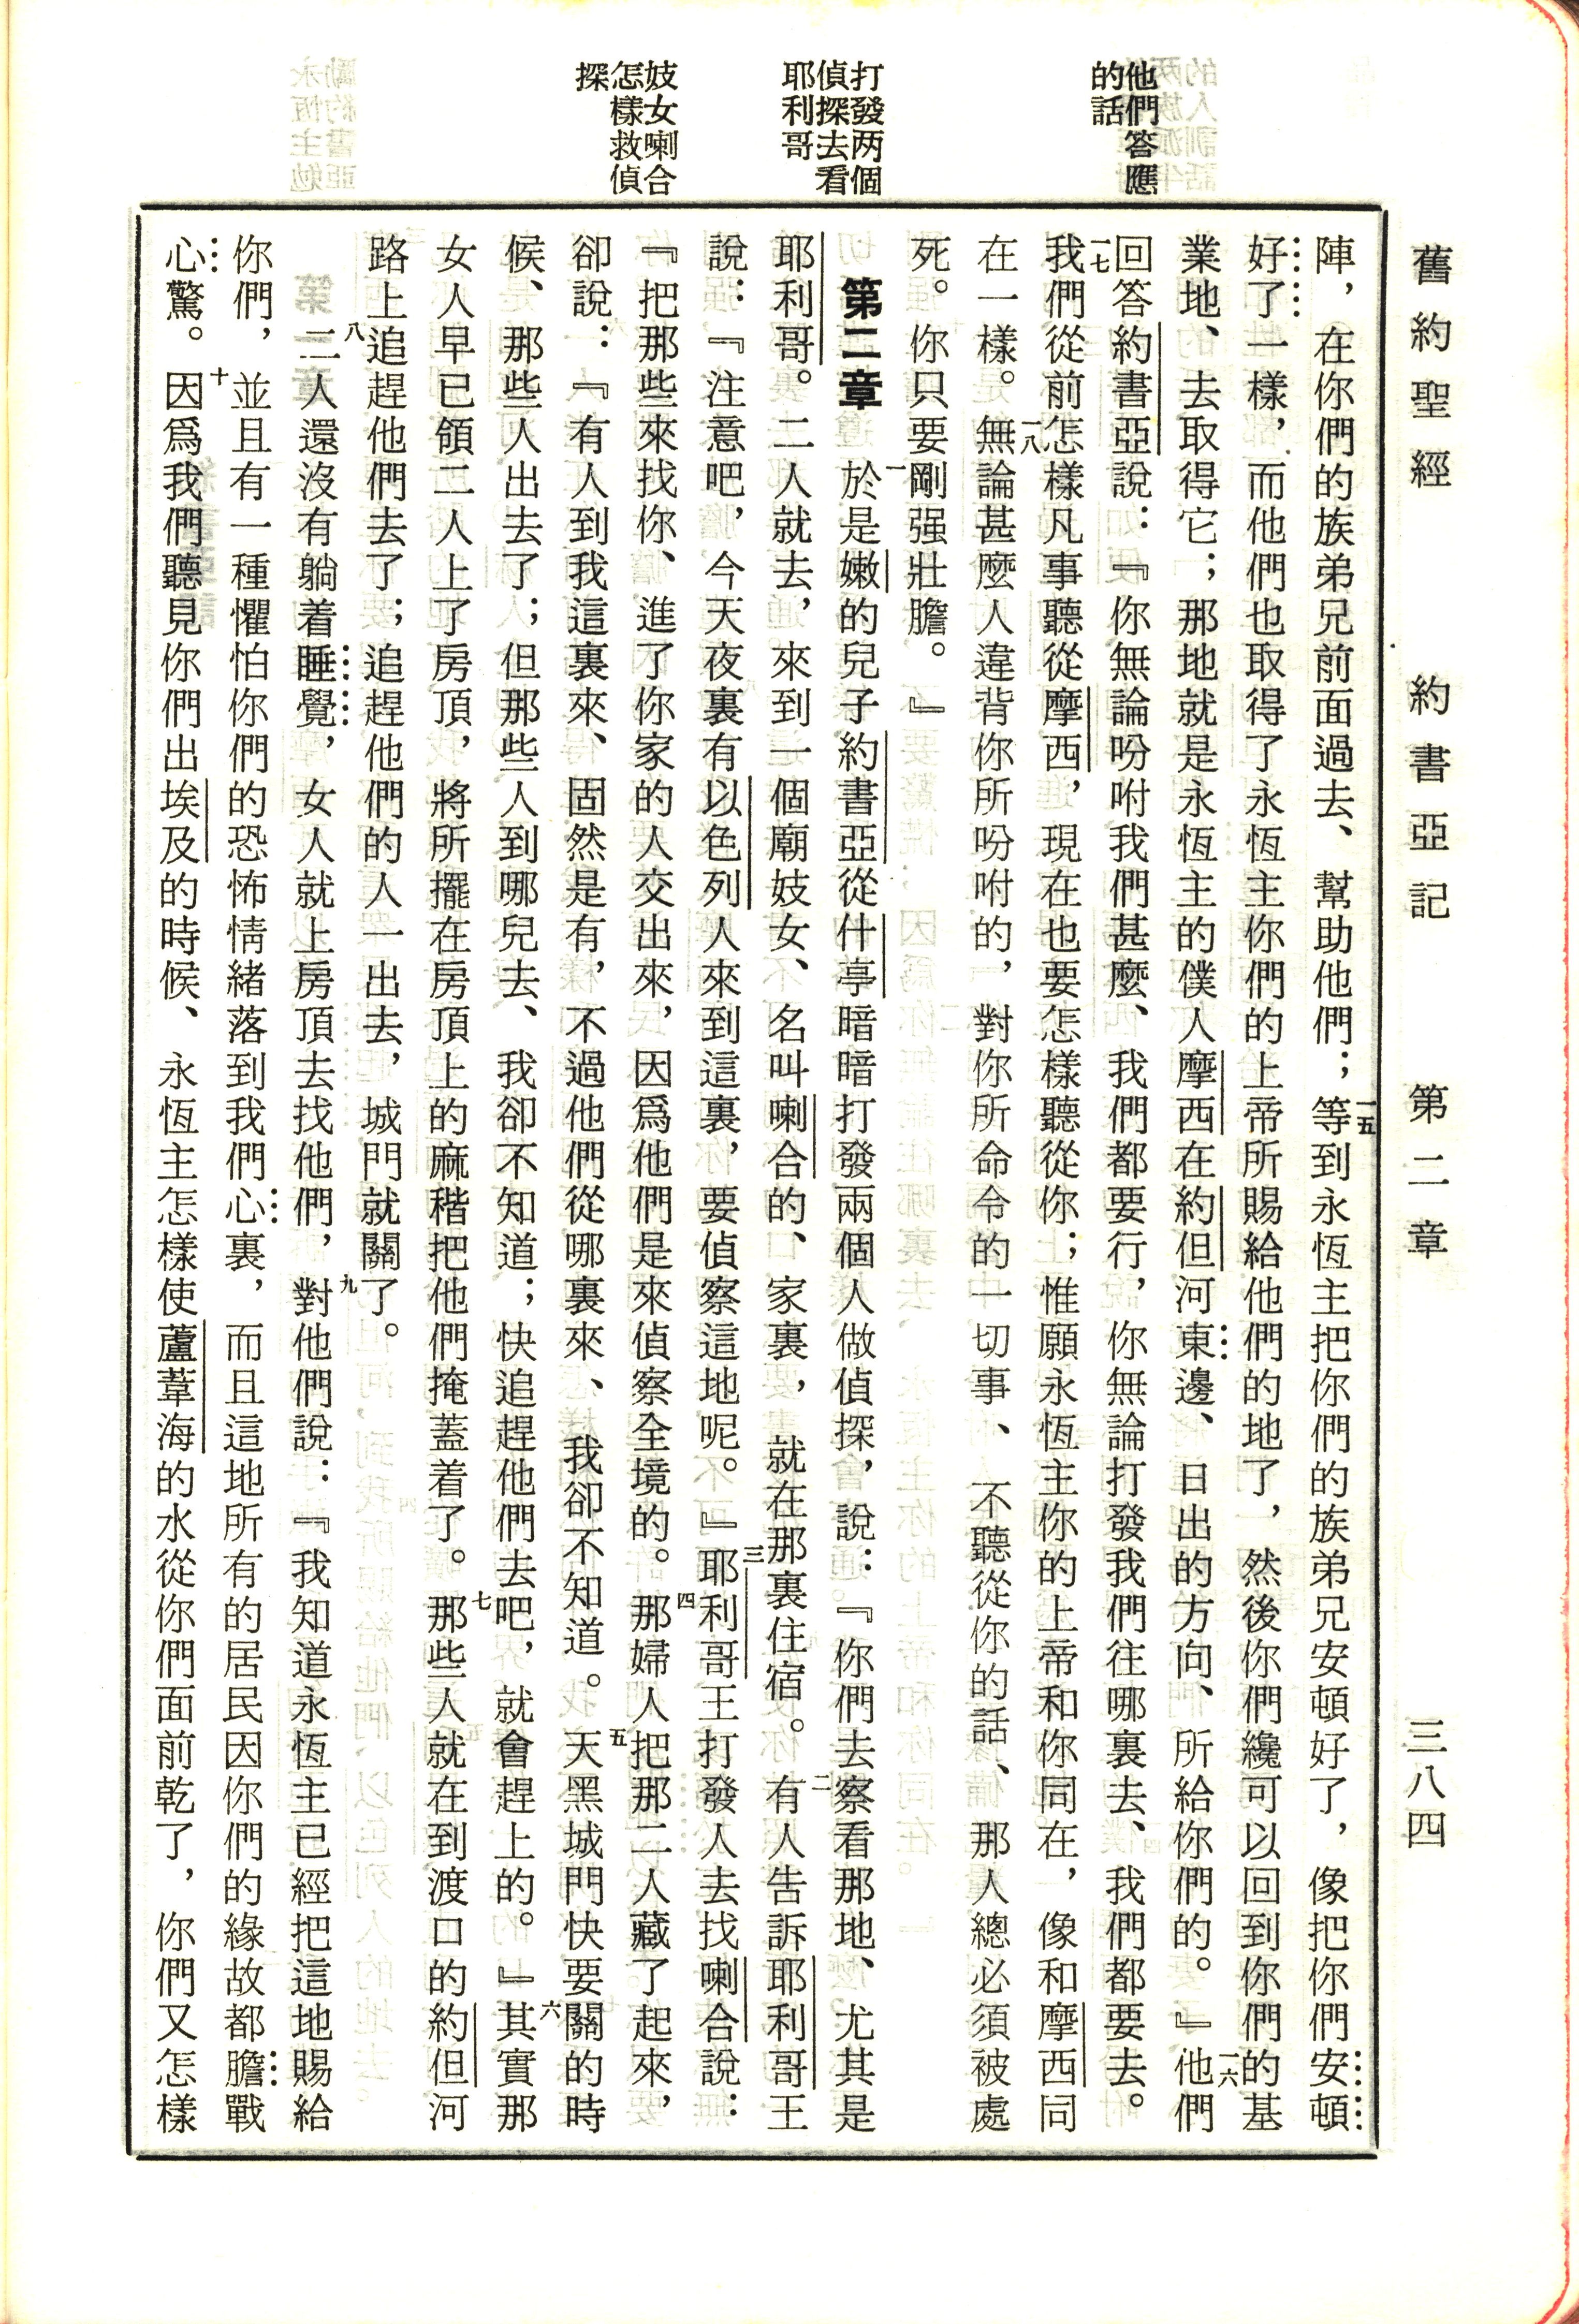 舊約聖經　約書亞記　第二章　三八四
他們答應
的話
打發两個
偵探去看
耶利哥
妓女喇合
怎樣救偵
探
陣，在你們的族弟兄前面過去、幫助他們；一五等到永恆主把你們的族弟兄安頓好了，像把你們安頓
好了一樣，而他們也取得了永恆主你們的上帝所賜給他們的地了，然後你們纔可以回到你們的基
業地、去取得它；那地就是永恆主的僕人摩西在約但河東邊、日出的方向、所給你們的。』一六他們
回答約書亞說：『你無論吩咐我們甚麼、我們都要行，你無論打發我們往哪裏去、我們都要去。
一七我們從前怎樣凡事聽從摩西，現在也要怎樣聽從你；惟願永恆主你的上帝和你同在，像和摩西同
在一樣。一八無論甚麼人違背你所吩咐的，對你所命令的一切事、不聽從你的話、那人總必須被處
死。你只要剛强壯膽。』
第二章　一於是嫩的兒子約書亞從什亭暗暗打發兩個人做偵探，說：『你們去察看那地、尤其是
耶利哥。二人就去，來到一個廟妓女、名叫喇合的、家裏，就在那裏住宿。二有人告訴耶利哥王
說：『注意吧，今天夜裏有以色列人來到這裏，要偵察這地呢。』三耶利哥王打發人去找喇合說：
『把那些來找你、進了你家的人交出來，因爲他們是來偵察全境的。四那婦人把那二人藏了起來，
卻說：『有人到我這裏來、固然是有，不過他們從哪裏來、我卻不知道。五天黑城門快要關的時
候、那些人出去了；但那些人到哪兒去、我卻不知道；快追趕他們去吧，就會趕上的。』六其實那
女人早已領二人上了房頂，將所擺在房頂上的麻稭把他們掩蓋着了。七那些人就在到渡口的約但河
路上追趕他們去了；追趕他們的人一出去，城門就關了。
八二人還沒有躺着睡覺，女人就上房頂去找他們，九對他們說：『我知道永恆主已經把這地賜給
你們，並且有一種懼怕你們的恐怖情緒落到我們心裏，而且這地所有的居民因你們的緣故都膽戰
心驚。十因爲我們聽見你們出埃及的時候、永恆主怎樣使蘆葦海的水從你們面前乾了，你們又怎樣